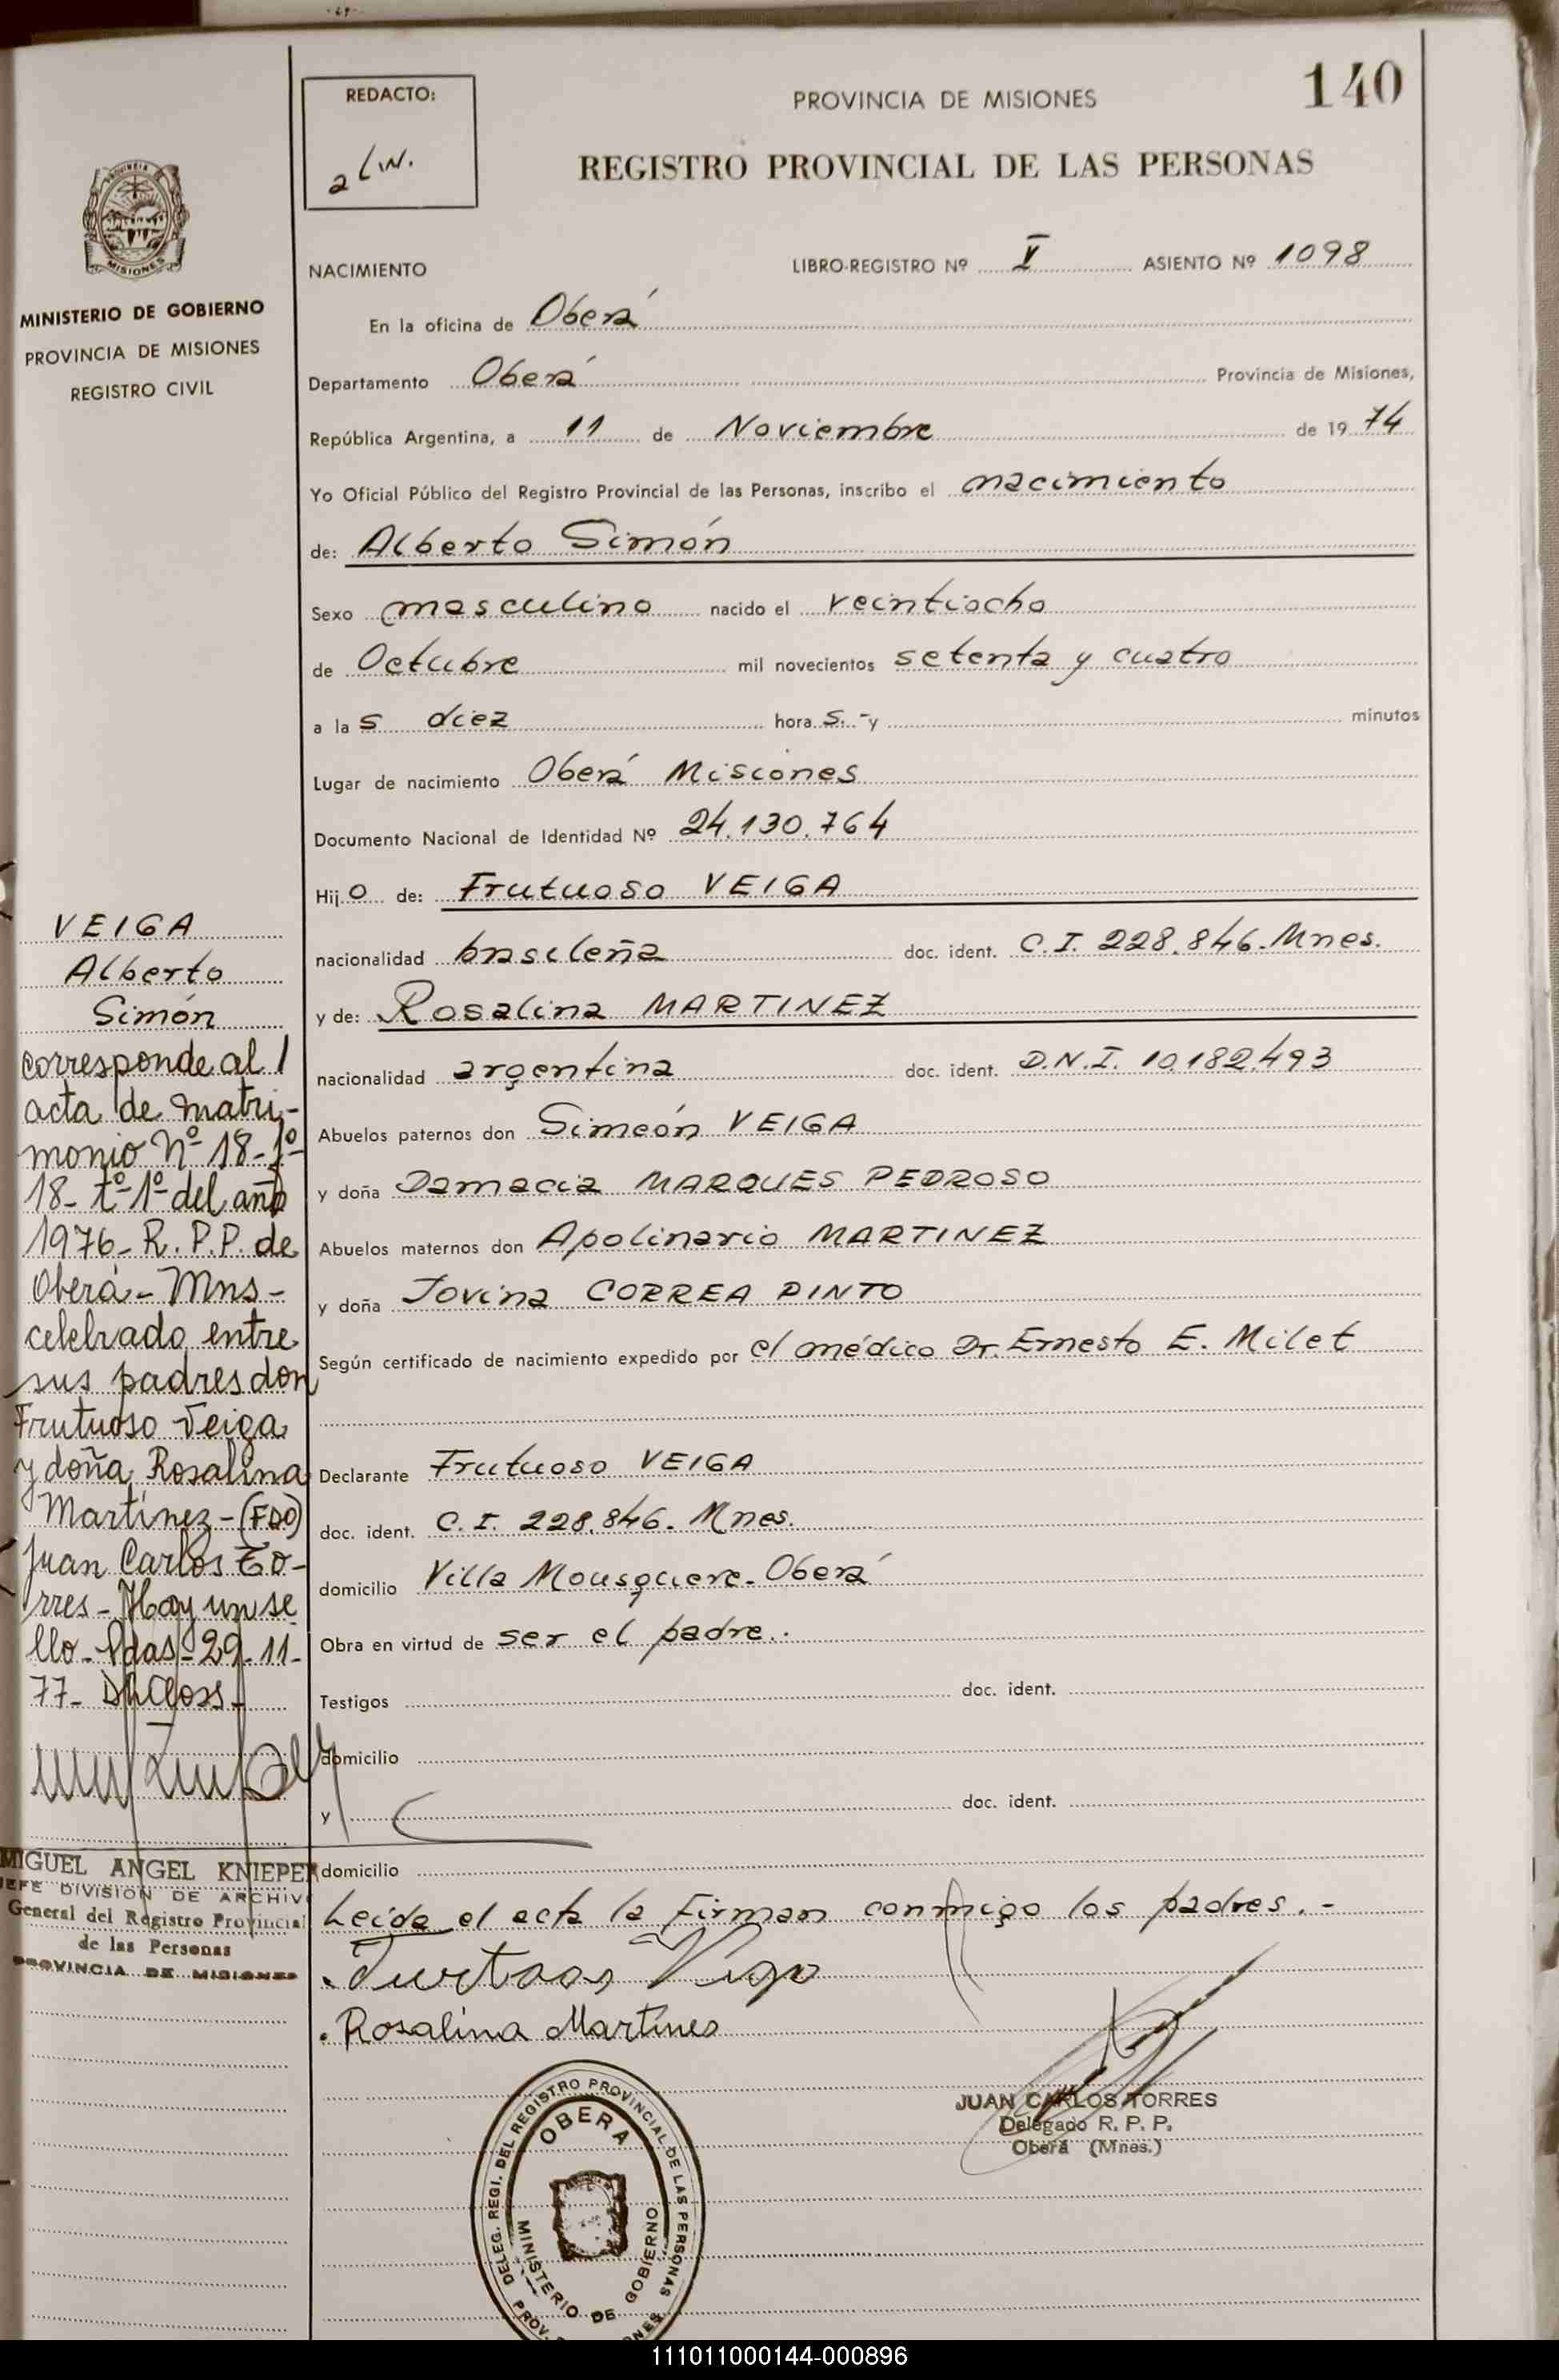 140
REDACTO:
PROVINCIA DE MISIONES
REGISTRO PROVINCIAL DE LAS PERSONAS
NACIMIENTO
LIBRO-REGISTRO Nº V ASIENTO Nº 1098
En la oficina de Oberá
Departamento Oberá Provincia de Misiones,
República Argentina, a 11 de Noviembre de 1974
Yo Oficial Público del Registro Provincial de las Personas, inscribo el nacimiento
de: Alberto Simón
Sexo masculino nacido el veintiocho
de Octubre mil novecientos setenta y cuatro
a las diez horas.- y minutos
Lugar de nacimiento Oberá Misiones
Documento Nacional de Identidad Nº 24.130.764
Hijo de: Frutuoso VEIGA
nacionalidad brasileña doc. ident. C.I. 228.846. Mnes.
y de: Rosalina MARTINEZ
nacionalidad argentina doc. ident. D.N.I. 10.182.493
Abuelos paternos don Simeón VEIGA
y doña Damacia MARQUES PEDROSO
Abuelos maternos don Apolinario MARTINEZ
y doña Jovina CORREA PINTO
Según certificado de nacimiento expedido por el médico Dr. Ernesto E. Milet
Declarante Frutuoso VEIGA
doc. ident. C.I. 228.846. Mnes.
domicilio Villa Mousquere. Oberá
Obra en virtud de ser el padre..
Testigos doc. ident.
domicilio
y doc. ident.
domicilio
Leida el acta la firman conmigo los padres.-
Rosalina Martines
JUAN CARLOS TORRES
Delegado R. P. P.
Oberá (Mnes.)
DELEG. REGI. DEL REGISTRO PROVINCIAL DE LAS PERSONAS
OBERA
MINISTERIO DE GOBIERNO
MISIONES
MINISTERIO DE GOBIERNO
PROVINCIA DE MISIONES
REGISTRO CIVIL
VEIGA
Alberto
Simón
Corresponde al
acta de matri-
monio Nº 18-fº
18- tº 1º del año
1976- R.P.P. de
Oberá- Mns-
celebrado entre
sus padres don
Frutuoso Veiga
y doña Rosalina
Martínez- (FDO)
Juan Carlos To-
rres- Hay un se
llo- Pdas- 29-11-
77-
MIGUEL ANGEL KNIEPER
JEFE DIVISION DE ARCHIVO
General del Registro Provincial
de las Personas
PROVINCIA DE MISIONES
111011000144-000896